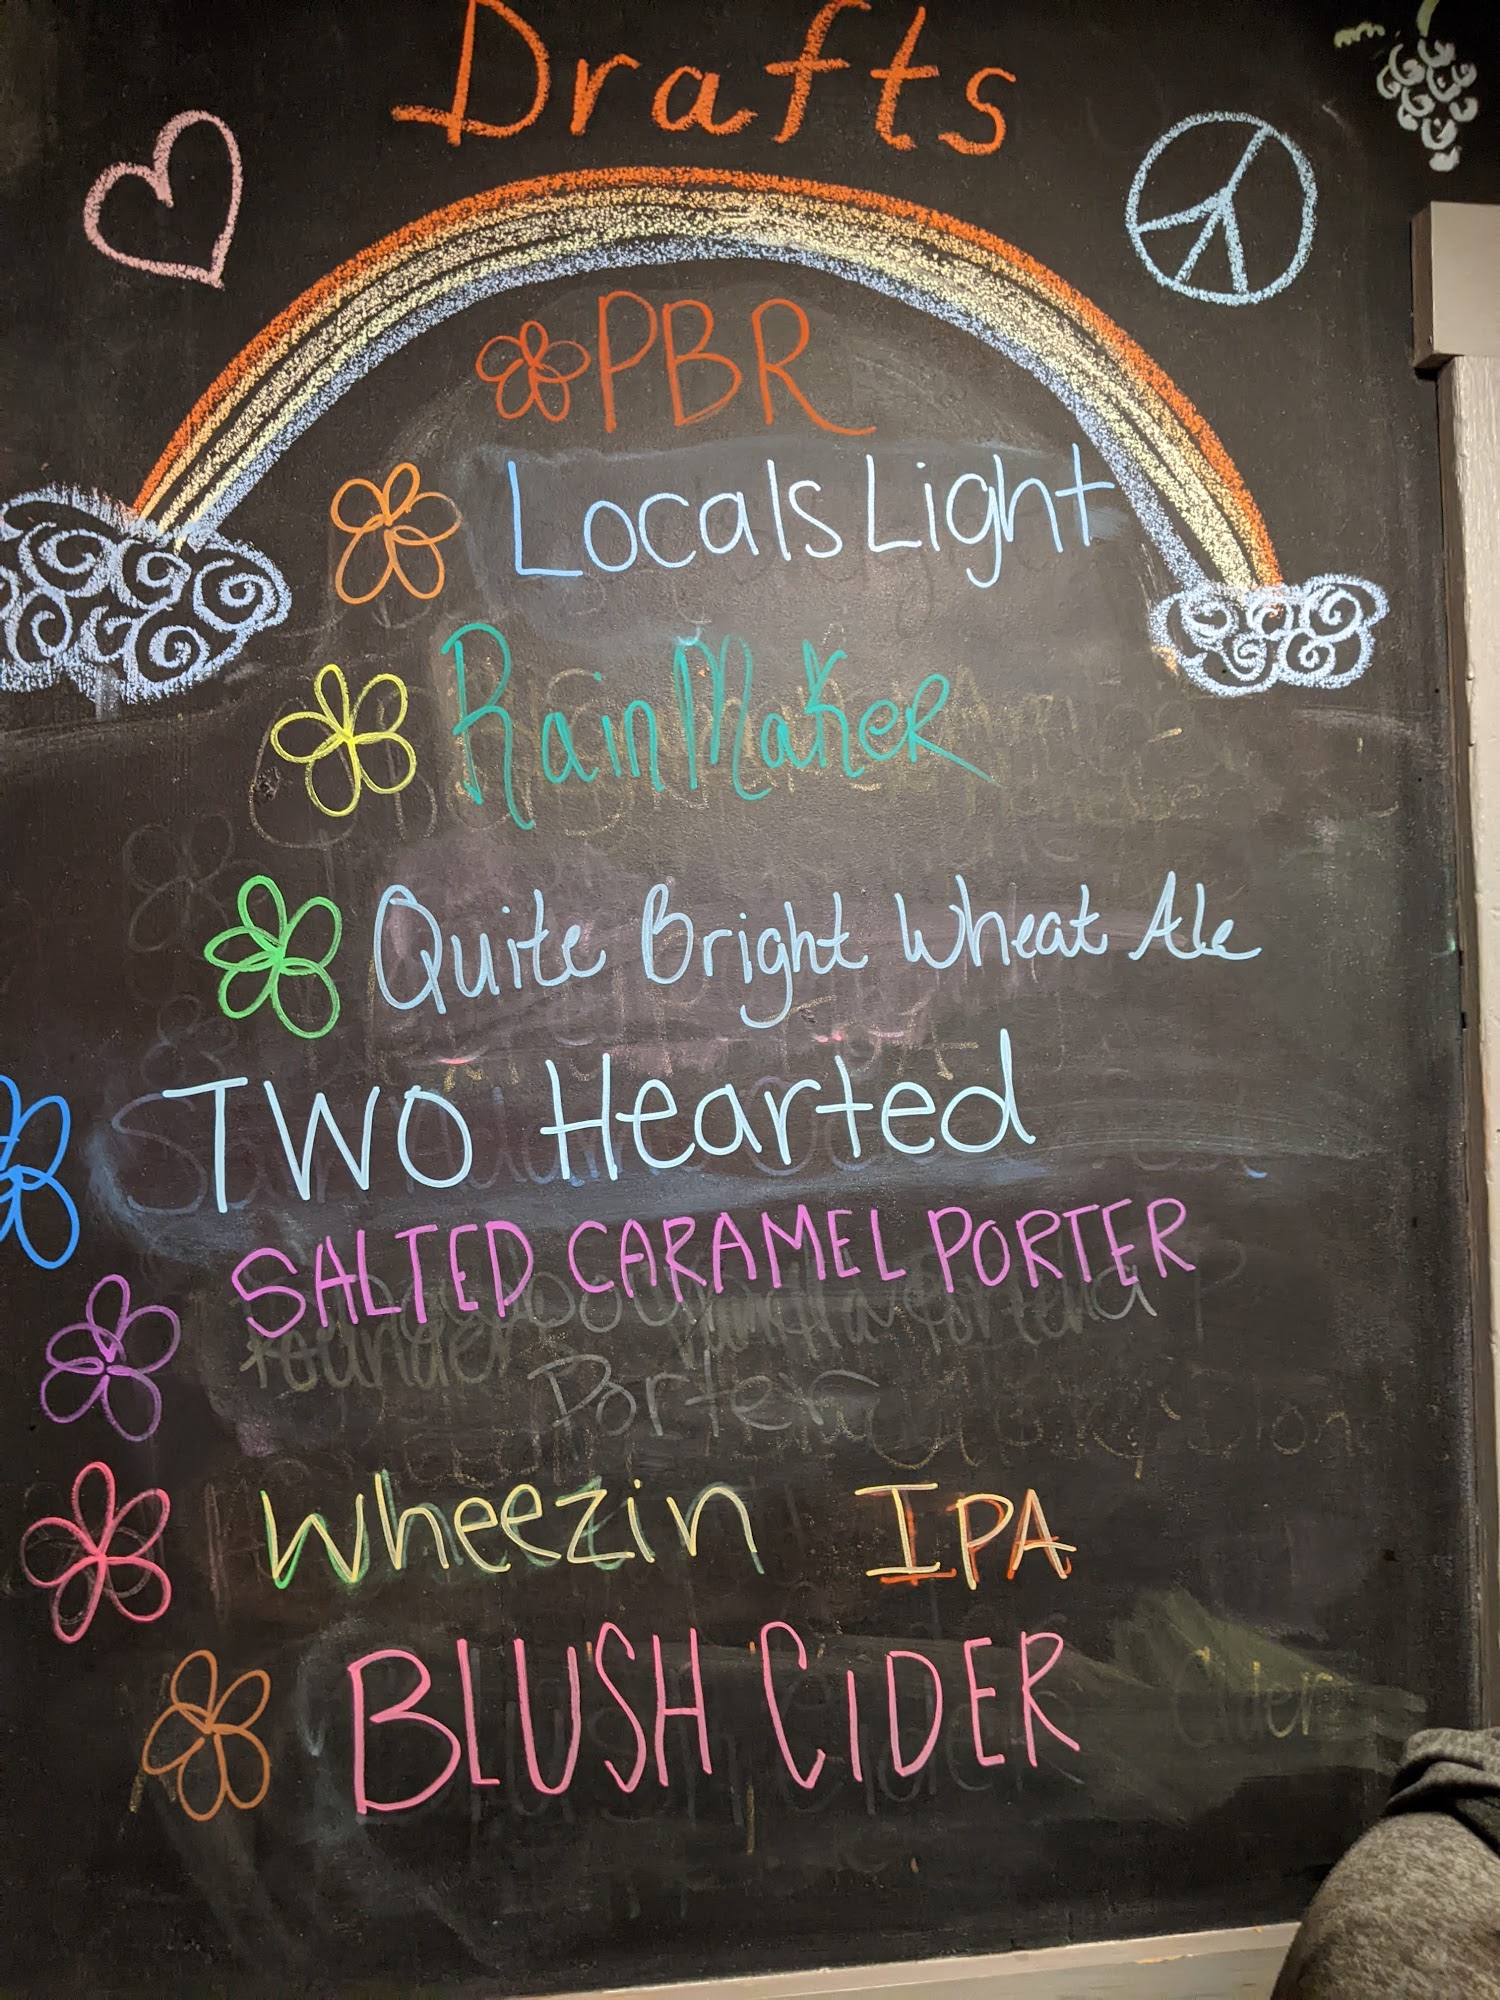 Drafts
PBR
Locals Light
RainMaker
Quite Bright Wheat Ale
Two Hearted
SALTED CARAMEL PORTER
Porter
Wheezin IPA
BLUSH CIDER
Cider